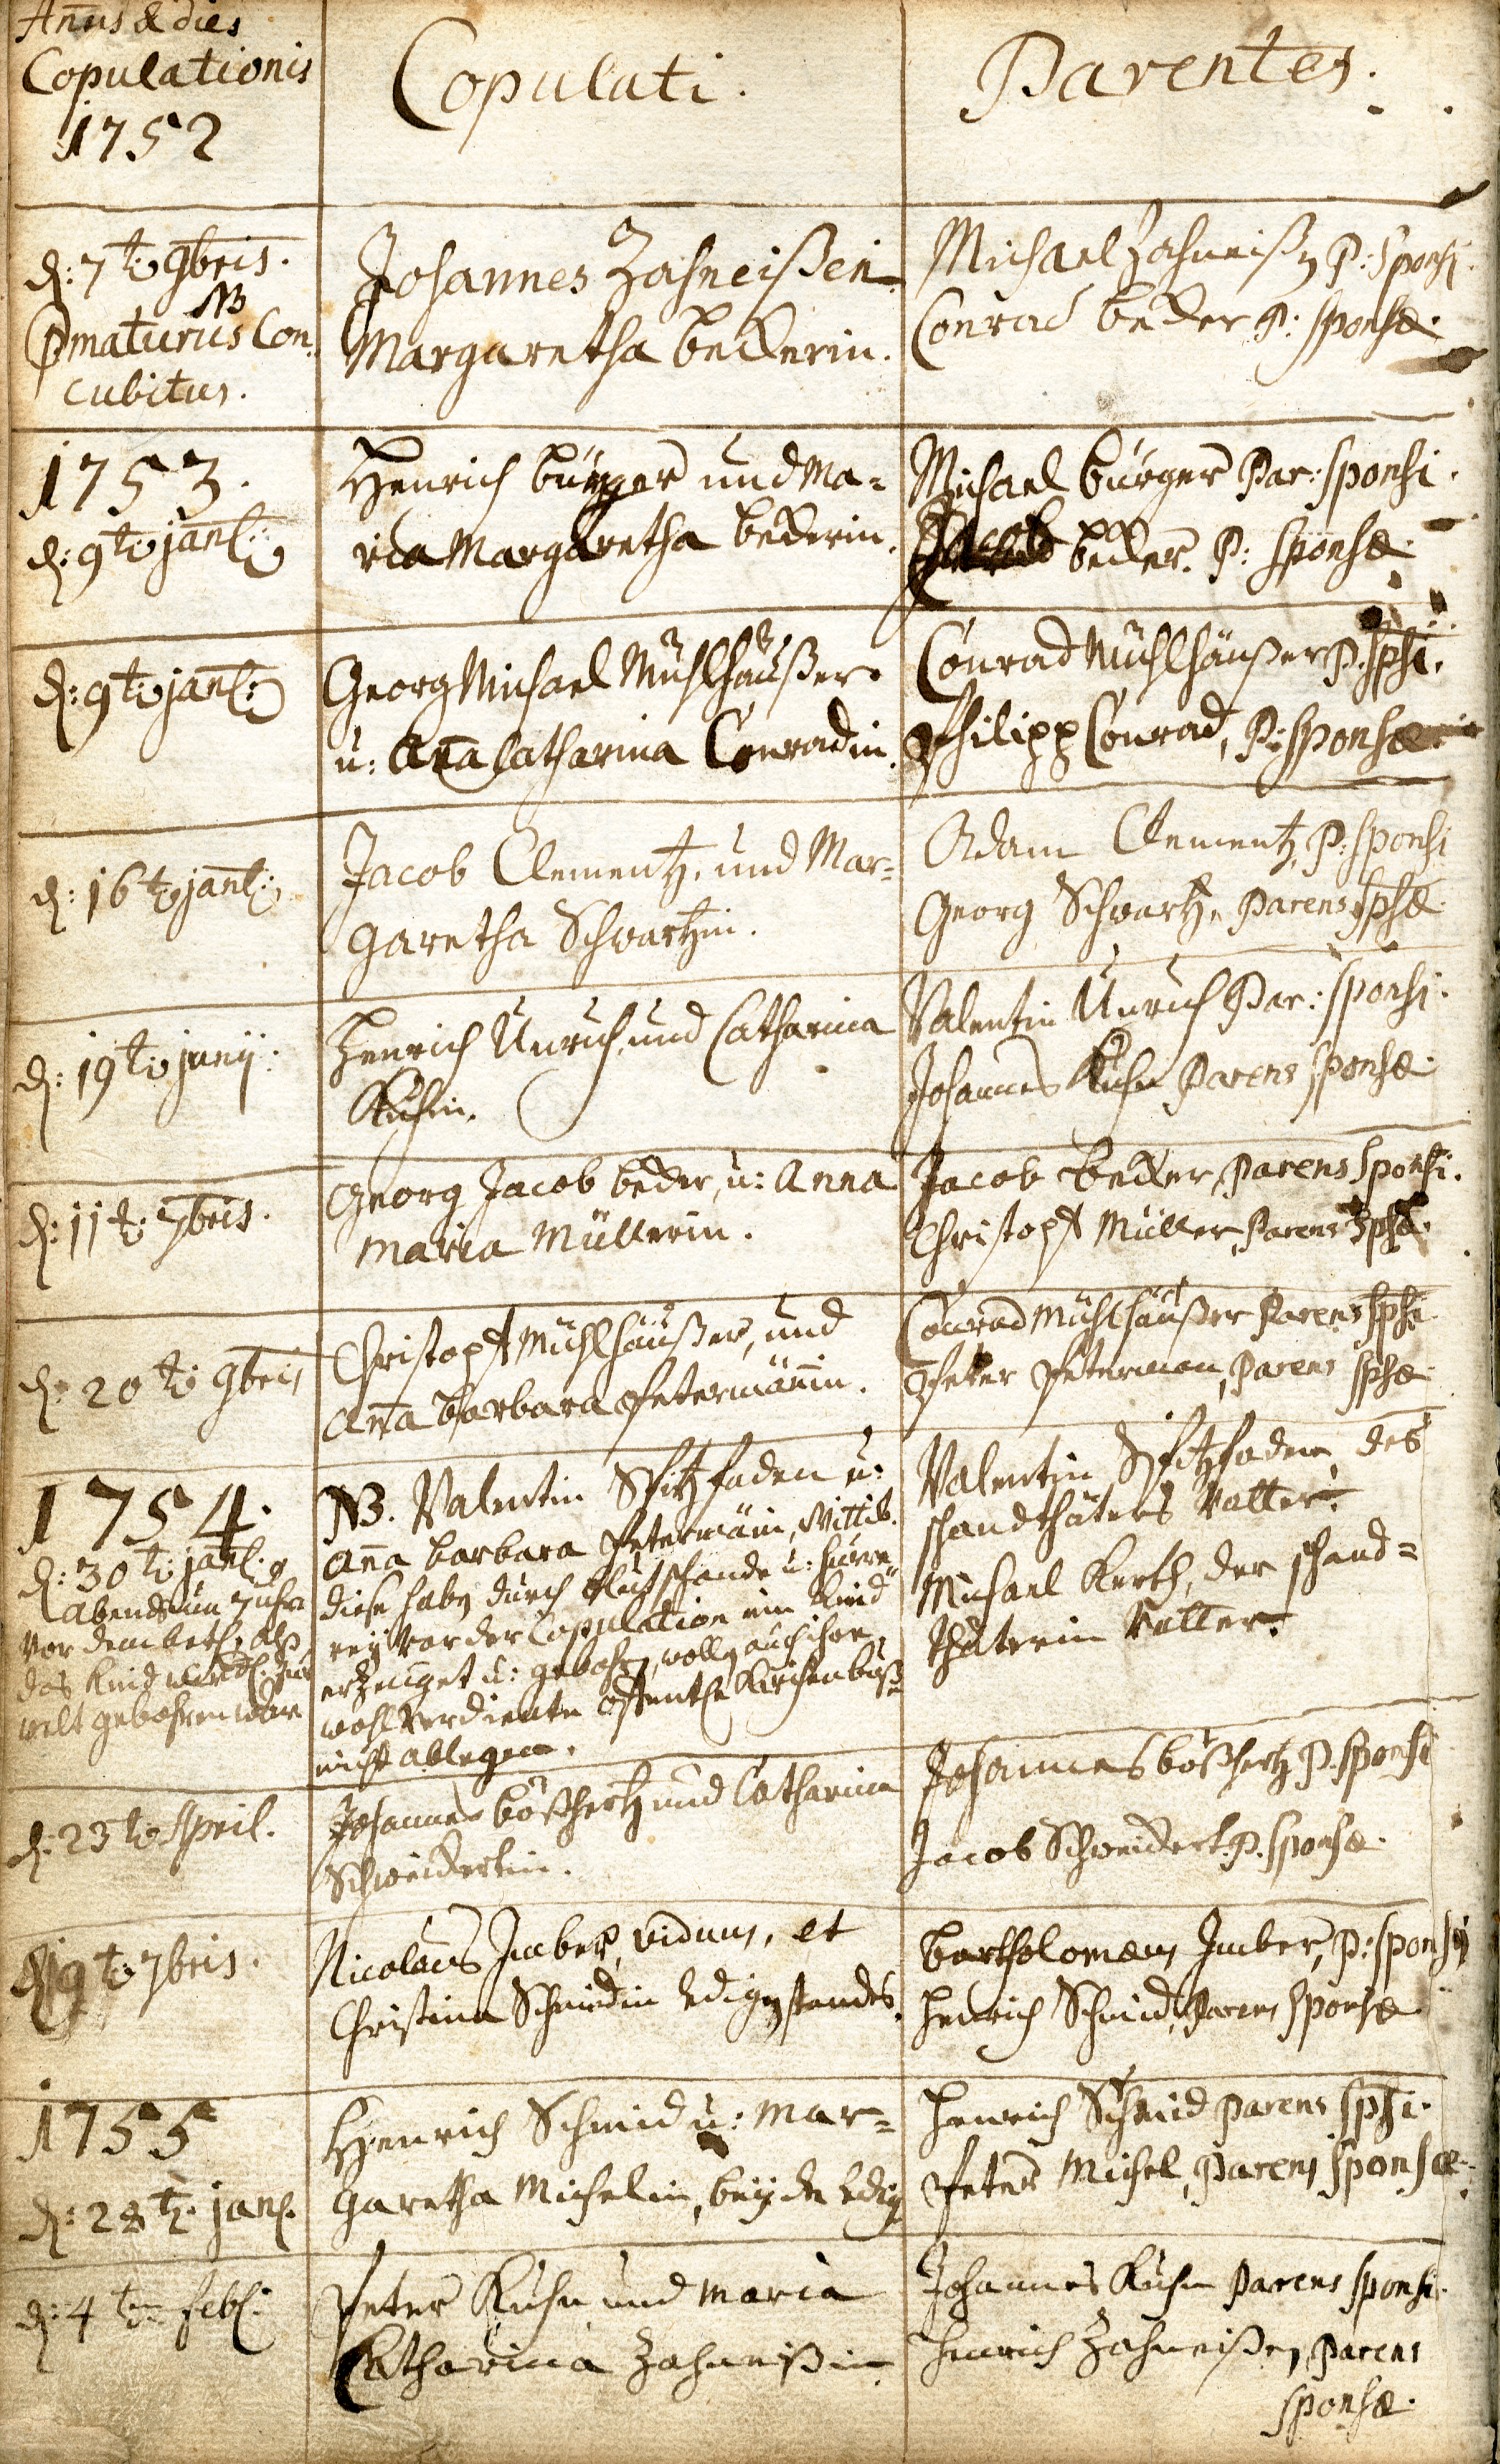 Añus & dies
Copulationis
1752
Copulati.
Parentes.
d: 7t: 9bris.
NB
Pmaturus Con:
cubitus.
Johannes Zahneißen
Margaretha beckerin.
Michael Zahneißen P: Sponsi.
Conrad becker P: sponsæ.
1753.
d: 9t: jan:
Henrich bürger und Ma=
ria Margaretha beckerin.
Michael bürger Par: sponsi.
Jacob becker. P: sponsæ.
d: 9t: jan:
Georg Michael Mühlhäußer
u: Aña Catharina Conradin.
Conrad Mühlhäußer P. spsi.
Philipp Conrad, P: sponsæ.
d: 16t: jan:
Jacob Clementz, und Mar=
garetha Schwartzin.
Adam Clementz, P: sponsi
Georg Schwartz, Parens spsæ.
d: 19t: junij:
Henrich Unruh, und Catharina
Kuhin.
Valentin Unruh Par: sponsi.
Johannes Kuhn Parens sponsæ.
d: 11t: 7bris.
Georg Jacob becker, u: Anna
Maria Müllerin.
Jacob becker, Parens Sponsi.
Christoph Müller, Parens spsæ.
d: 20t: 9bris
Christoph Mühlhäußer, und
Aña barbara Petermänin.
Conrad Mühlhäußer Parens spsi
Peter Peterman, Parens spsæ.
1754.
d: 30t: jan:
abends um 7 uhr
vor dem beth, als
das Kind zur
welt gebohren war
NB. Valentin Spitzfaden u:
Aña barbara Petermänin, Wittib.
diese haben durch blutschande u: hure=
rey vor der Copulation ein Kind
erzeuget u: gebohren, wollen auch ihre
wohl verdiente offentliche Kirchenbuß
nicht ablegen.
Valentin Spitzfaden, des
schandthäters Vatter.
Michael Kerth, der schand=
thäterin Vatter.
d: 23t: April.
Johannes bößhertz und Catharina
Schweickertin.
Johannes bößhertz P. sponsi
Jacob Schweickert. P. sponsæ.
d: 19t: 7bris.
Nicolaus Imber, viduus, et
Christina Schmidin ledigen stands.
Bartholomeus Imber, P: sponsi
Henrich Schmid, Parens sponsæ
1755
d: 28t: jan:
Henrich Schmid u: Mar=
garetha Michelin, beyde ledig
Henrich Schmid Parens spsi.
Peter Michel, Parens sponsæ.
d: 4t: feb:
Peter Kuhn und Maria
Catharina Zahneißin
Johannes Kuhn Parens sponsi.
Henrich Zahneißen, Parens
sponsæ.